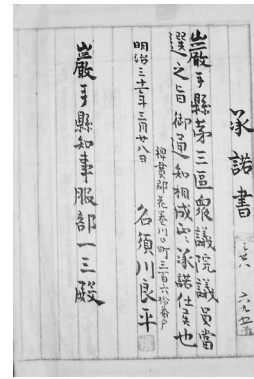 承諾書
巖手縣第三區衆議院議員當
選之旨御通知相成候承諾仕候也
稗貫郡花巻川口町三百六拾番戸
明治三十一年三月廿八日
名須川良平
巖手縣知事服部一三殿